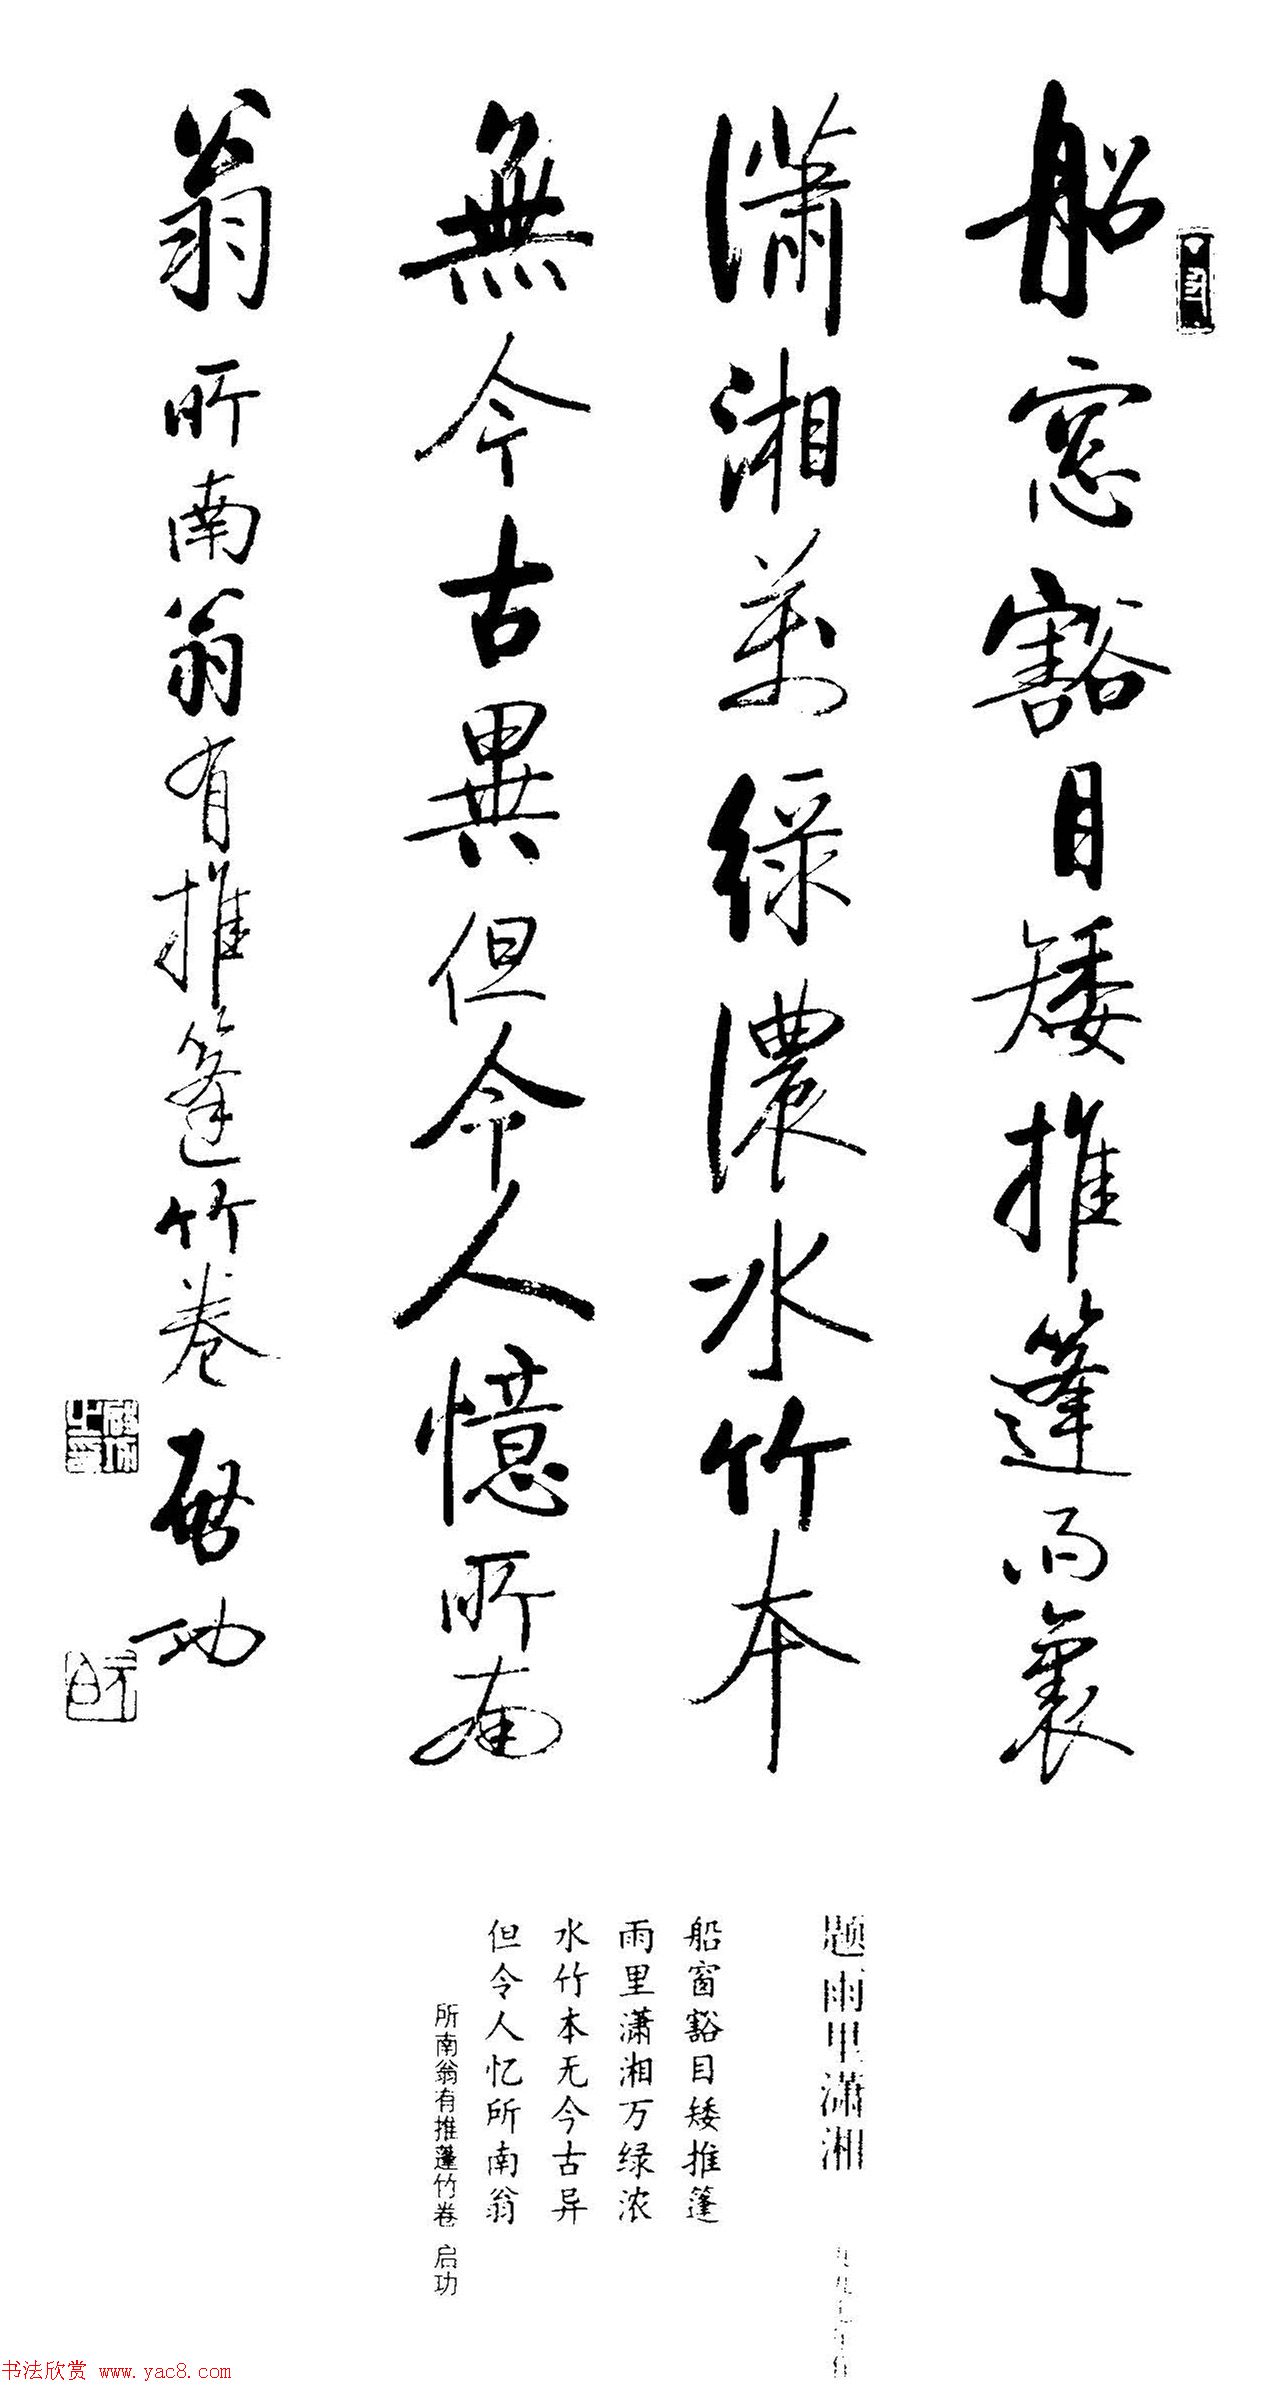 船窓豁目矮推篷雨裏
瀟湘萬緑濃水竹本
無今古異但令人憶所南
翁
所南翁有推篷竹卷
啓功
题雨里潇湘
船窗豁目矮推篷
雨里潇湘万绿浓
水竹本无今古异
但令人忆所南翁
所南翁有推蓬竹卷 启功
书法欣赏 www.yac8.com